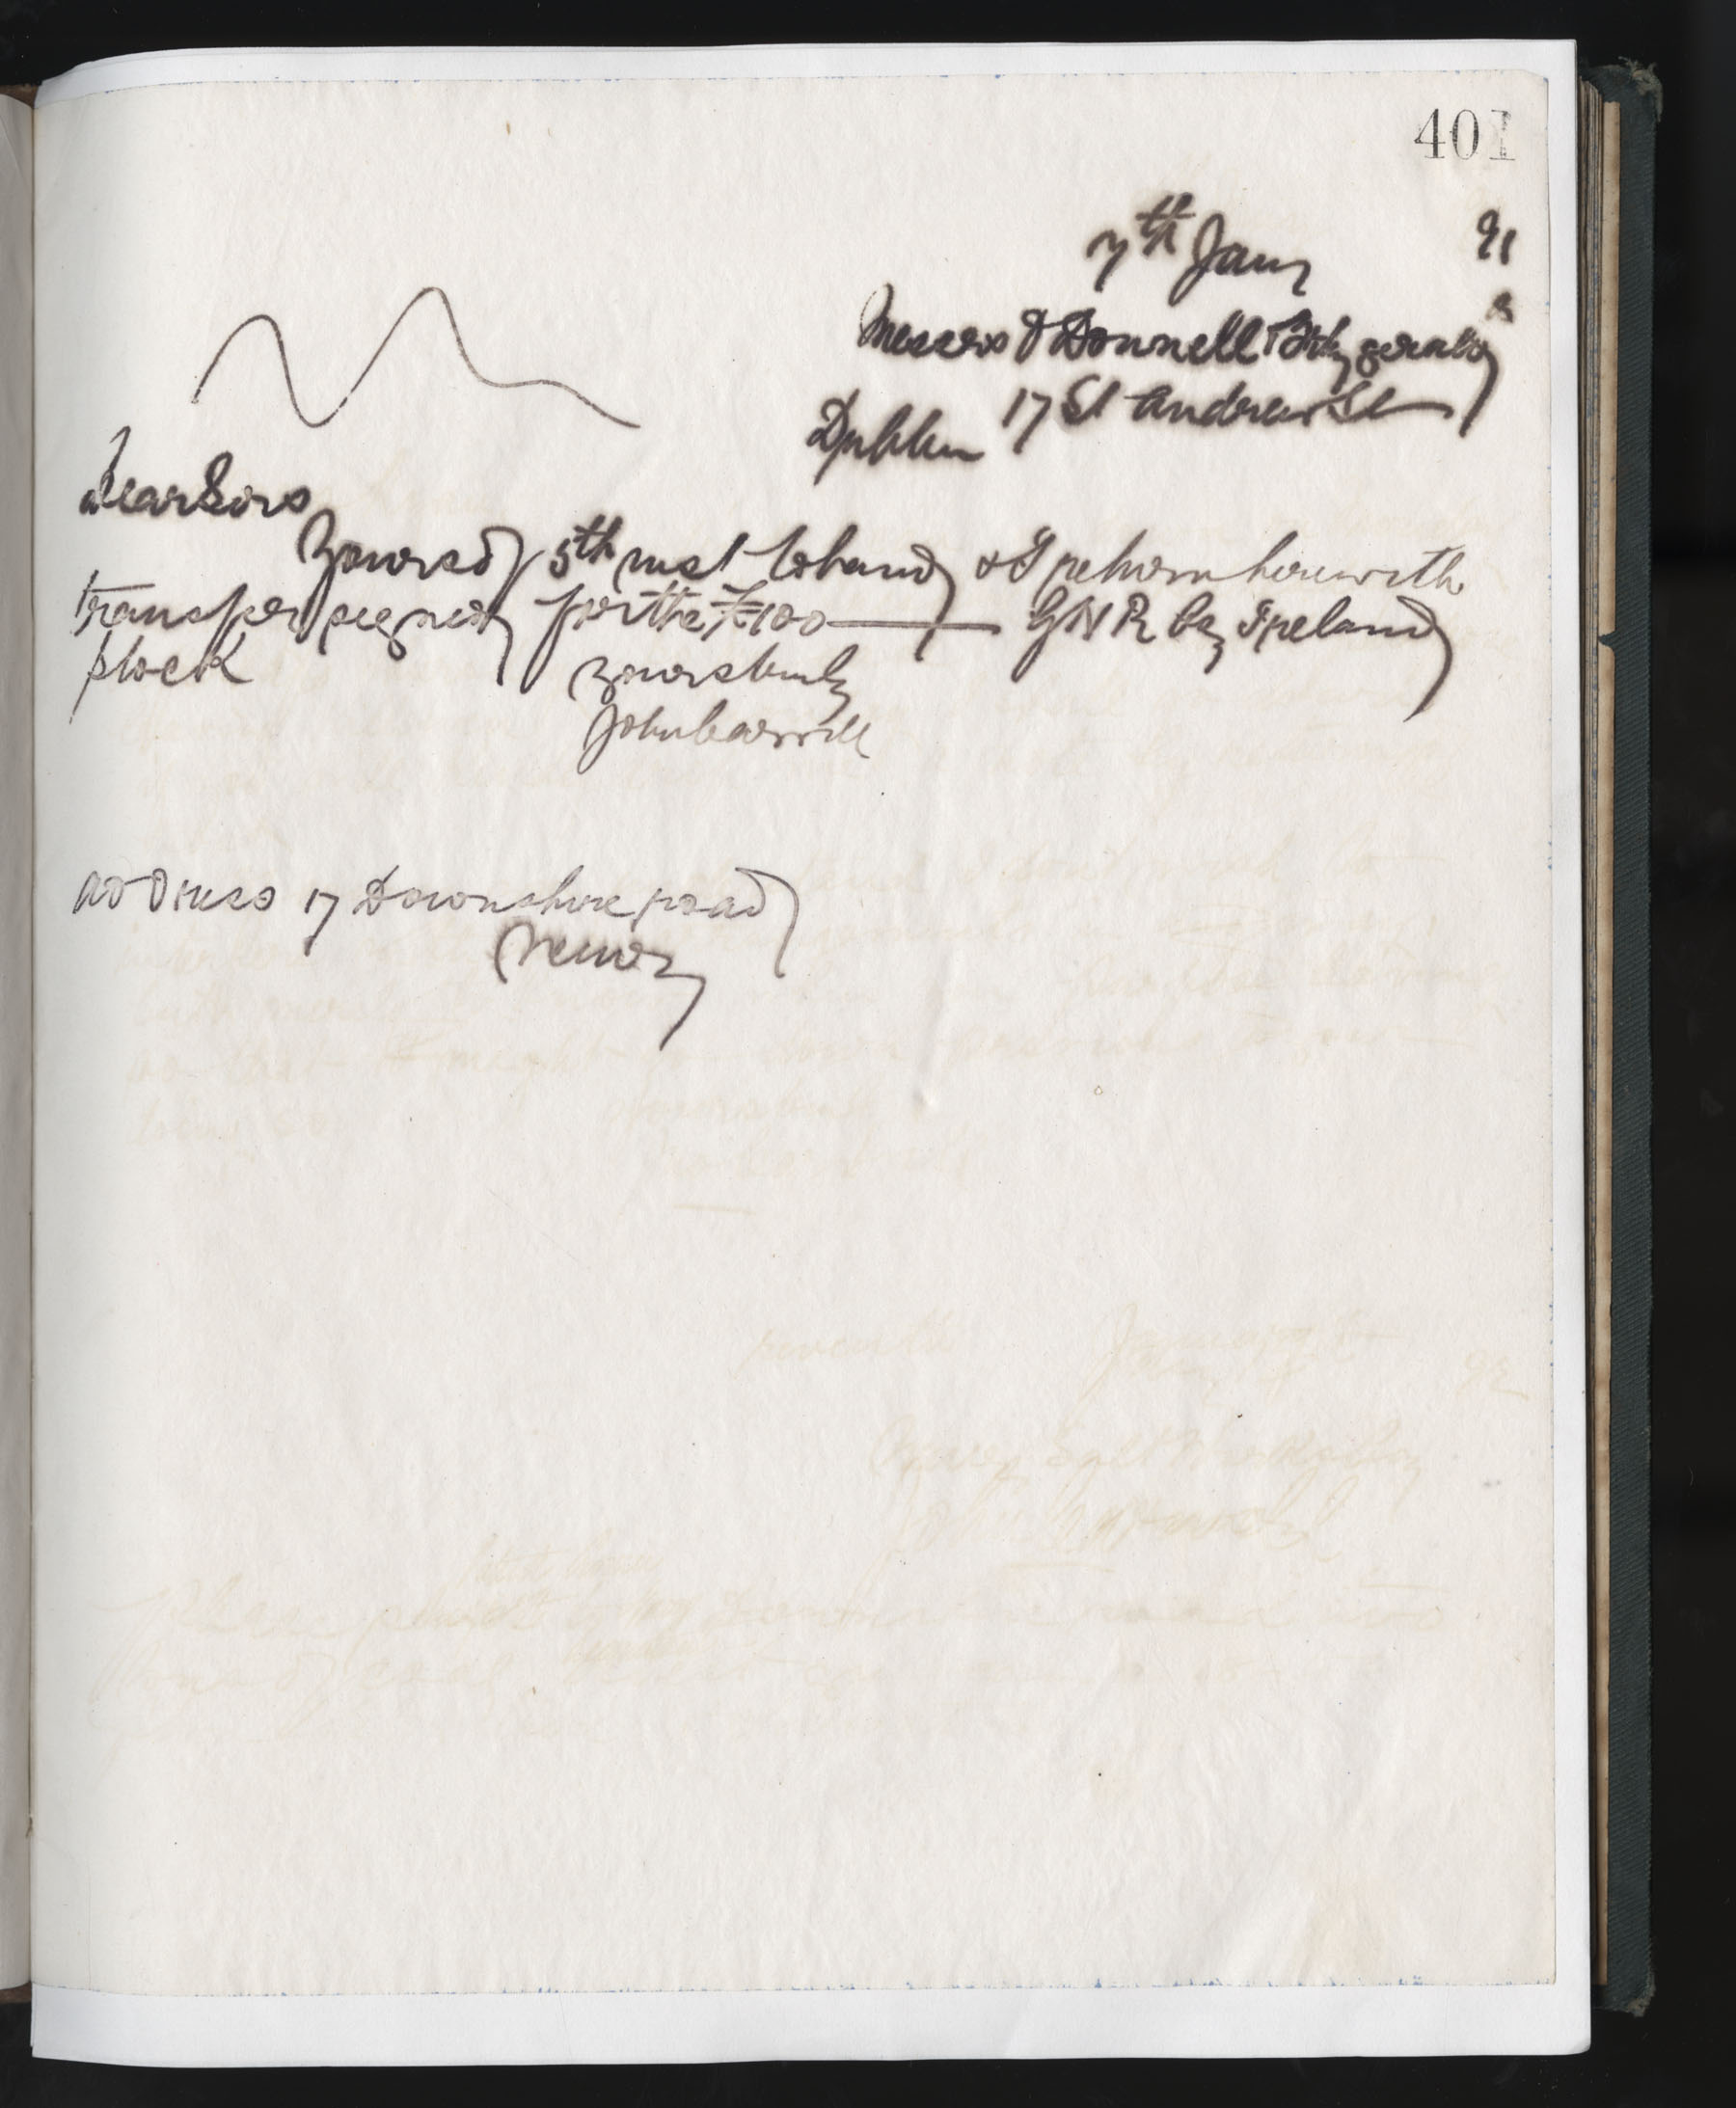 401
7th Jany 91
Messrs O Donnell & Fitzgerald
17 St Andrew St
Dublin
Dear Sirs
Yours of 5th inst to hand & I return herewith
transfer signed for the £100 — GNR Co, Ireland
stock
yours truly
John Carvill
address 17 Downshire road
Newry